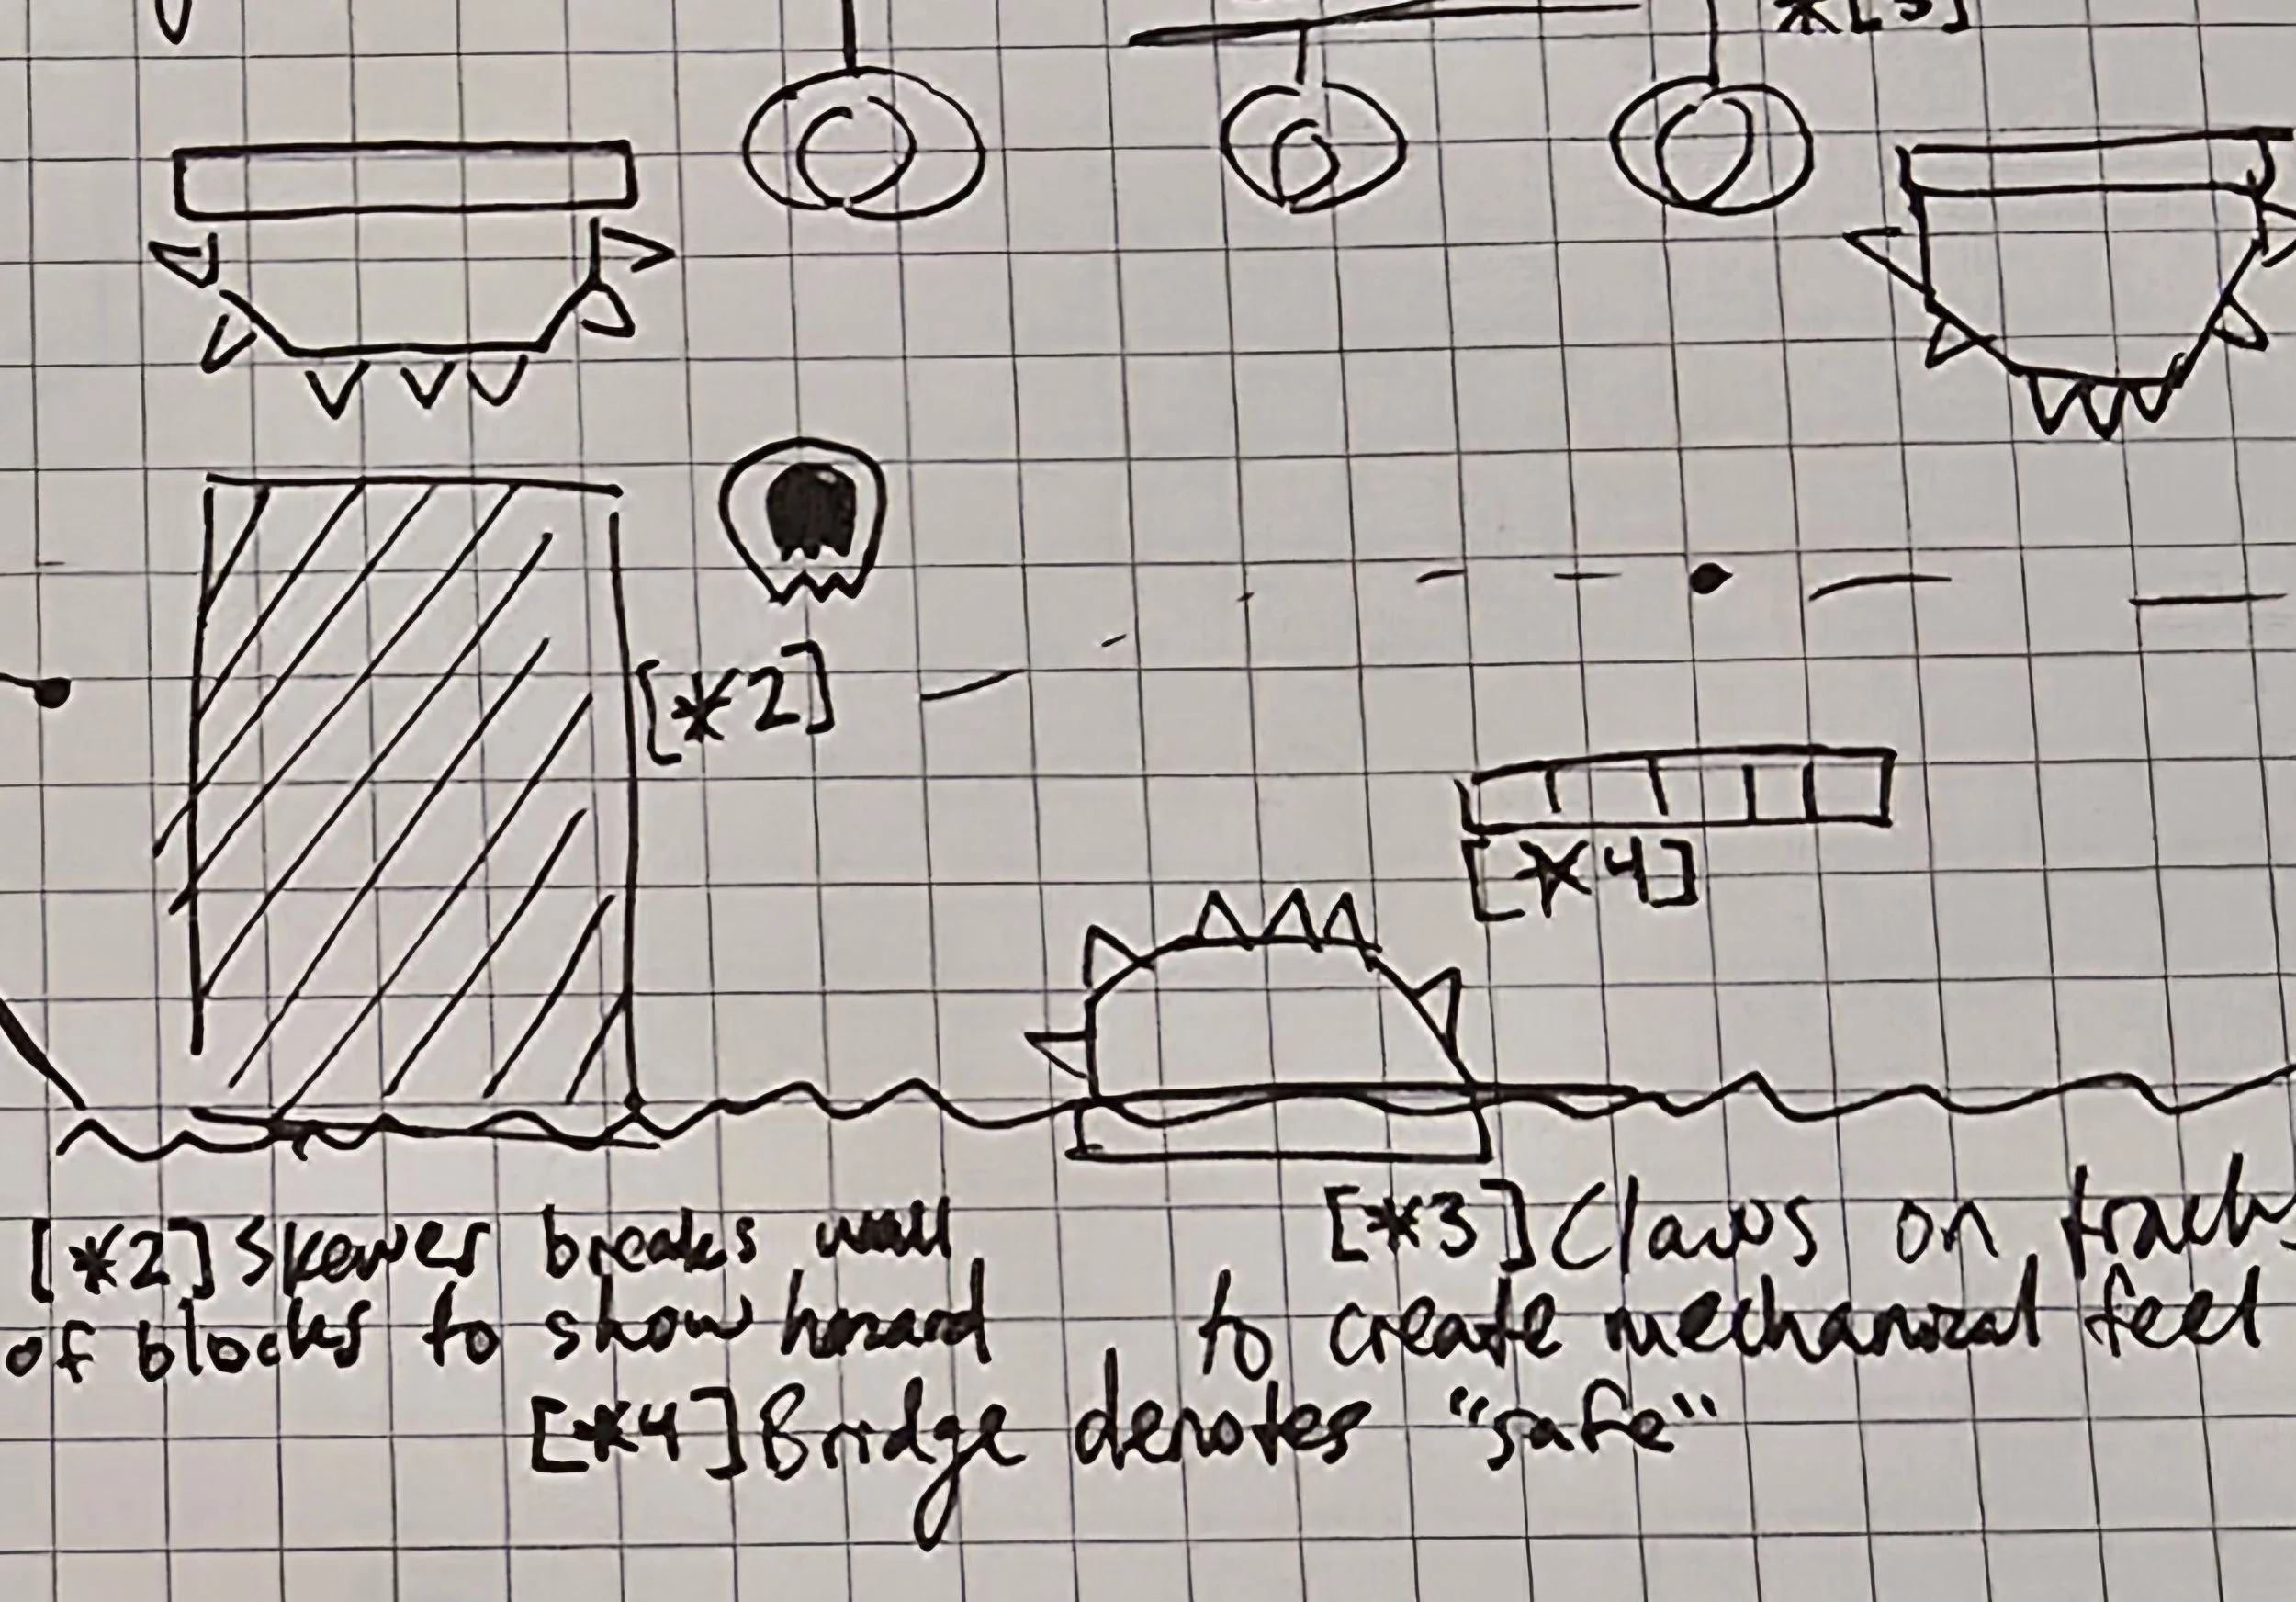 *[3]
[*2]
[*4]
[*2] Skewer breaks wall
of blocks to show hazard
[*3] Claws on track
to create mechanical feel
[*4] Bridge denotes "safe"